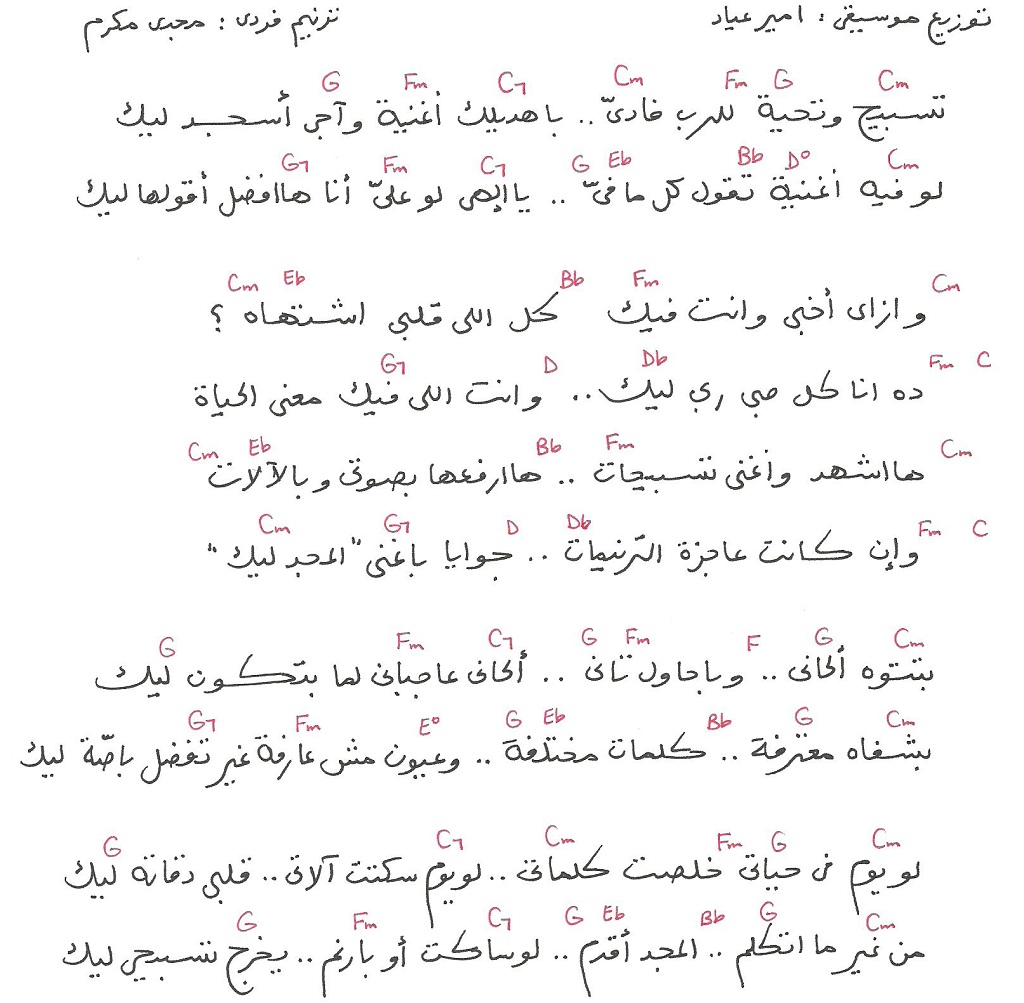 توزيع موسيقى : امير عياد    ترنيم فردى : مجدى مكرم
Cm G Fm Cm C7 Fm G
تسبيح وتحية للرب فادىّ .. باهديلك أغنية وآجى أسجد ليك
Cm D° Bb Eb G C7 Fm G7
لو فيه أغنية تقول كل ما فىّ .. يا إلهى لو علىّ أنا هاافضل أقولها ليك
Cm Fm Bb Eb Cm
وازاى أخبى وانت فيك كل اللى قلبى اشتهاه ؟
C Fm Db D G7
ده انا كل حبى ري ليك .. وانت اللى فيك معنى الحياة
Cm Fm Bb Eb Cm
هااشهد واغنى تسبيحات .. هاارفعها بصوتى وبالآلات
C Fm Db D G7 Cm
وإن كانت عاجزة الترنيمات .. جوايا باغنى "المجد ليك"
Cm G F Fm G C7 Fm G
بتتوه ألحانى .. وباحاول تانى .. ألحانى عاجبانى لما بتكون ليك
Cm G Bb Eb G E° Fm G7
بشفاه معترفة .. كلمات مختلفة .. وعيون مش عارفة غير تفضل باصّة ليك
Cm G Fm Cm C7 G
لو يوم فى حياتى خلصت كلماتى .. لو يوم سكتت آلاتى .. قلبى دقاته ليك
Cm G Bb Eb G C7 Fm G
من غير ما اتكلم .. المجد أقدم .. لو ساكت أو بارنم .. يخرج تسبيحى ليك